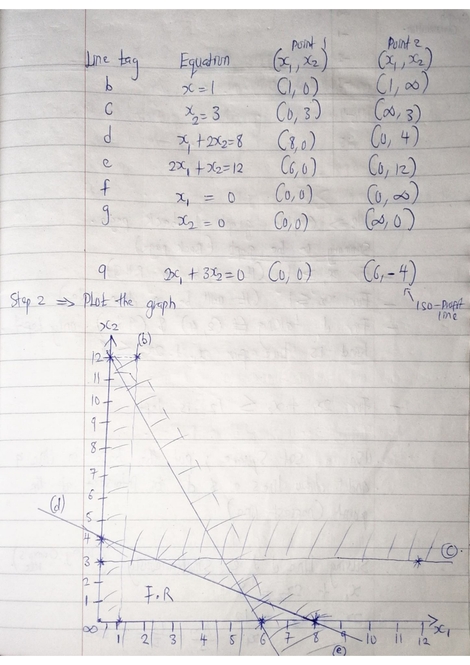 Line tag Equation Point 1 (x₁, x₂) Point 2 (x₁, x₂)
b x = 1 (1, 0) (1, ∞)
c x₂ = 3 (0, 3) (∞, 3)
d x₁ + 2x₂ = 8 (8, 0) (0, 4)
e 2x₁ + x₂ = 12 (6, 0) (0, 12)
f x₁ = 0 (0, 0) (0, ∞)
g x₂ = 0 (0, 0) (∞, 0)
a 2x₁ + 3x₂ = 0 (0, 0) (6, -4)
Iso-Profit line
Step 2 ⇒ Plot the graph
x₂
(b)
12
11
10
9
8
7
6
(d)
5
4
3 (c)
2
1 F.R
1 2 3 4 5 6 7 8 9 10 11 12 x₁
(e)